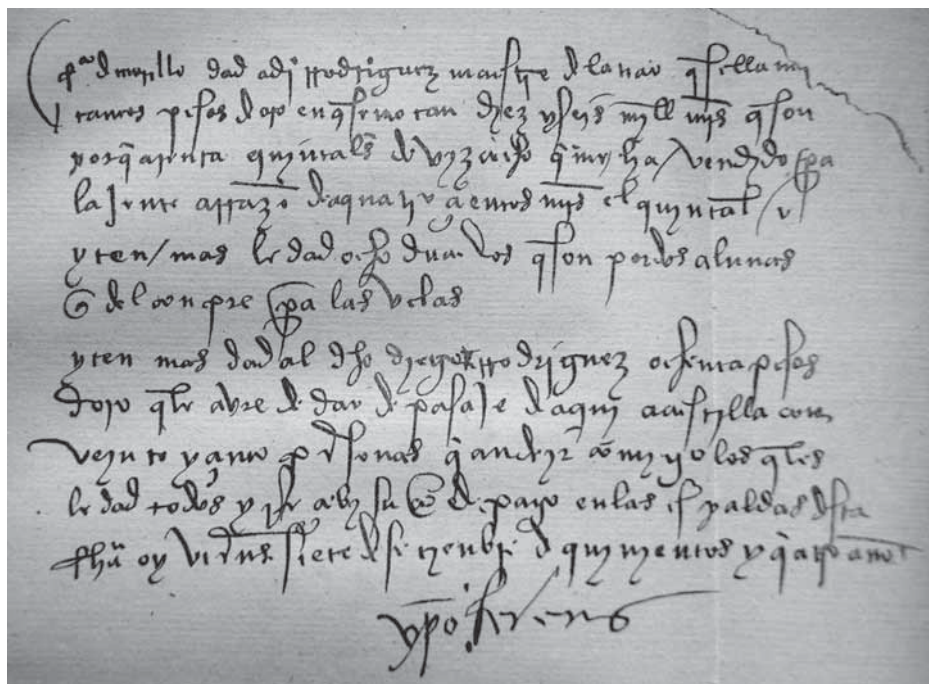 d morillo dad a dj° rrodriguez maestre de la nao
tantos pesos d oro en q se montan diez y seys mill mrs q son
por qarenta quyntals de vyzcocho q my ha vendido pa
la jente a rrazo d a quatro çientos mrs el quyntal /
yten / mas le dad ocho ducados q son por dos
q del conpre pa las velas
yten mas dad al dho diego rrodriguez ochenta pesos
d oro q le avre de dar de pasaje d aqui a castylla con
veynte y çinco psonas q an de yr co my go los qles
le dad todos y su co de pago en las espaldas dsta
fha oy viernes siete d setienbre d quynientos y qatro años
xpo ferens